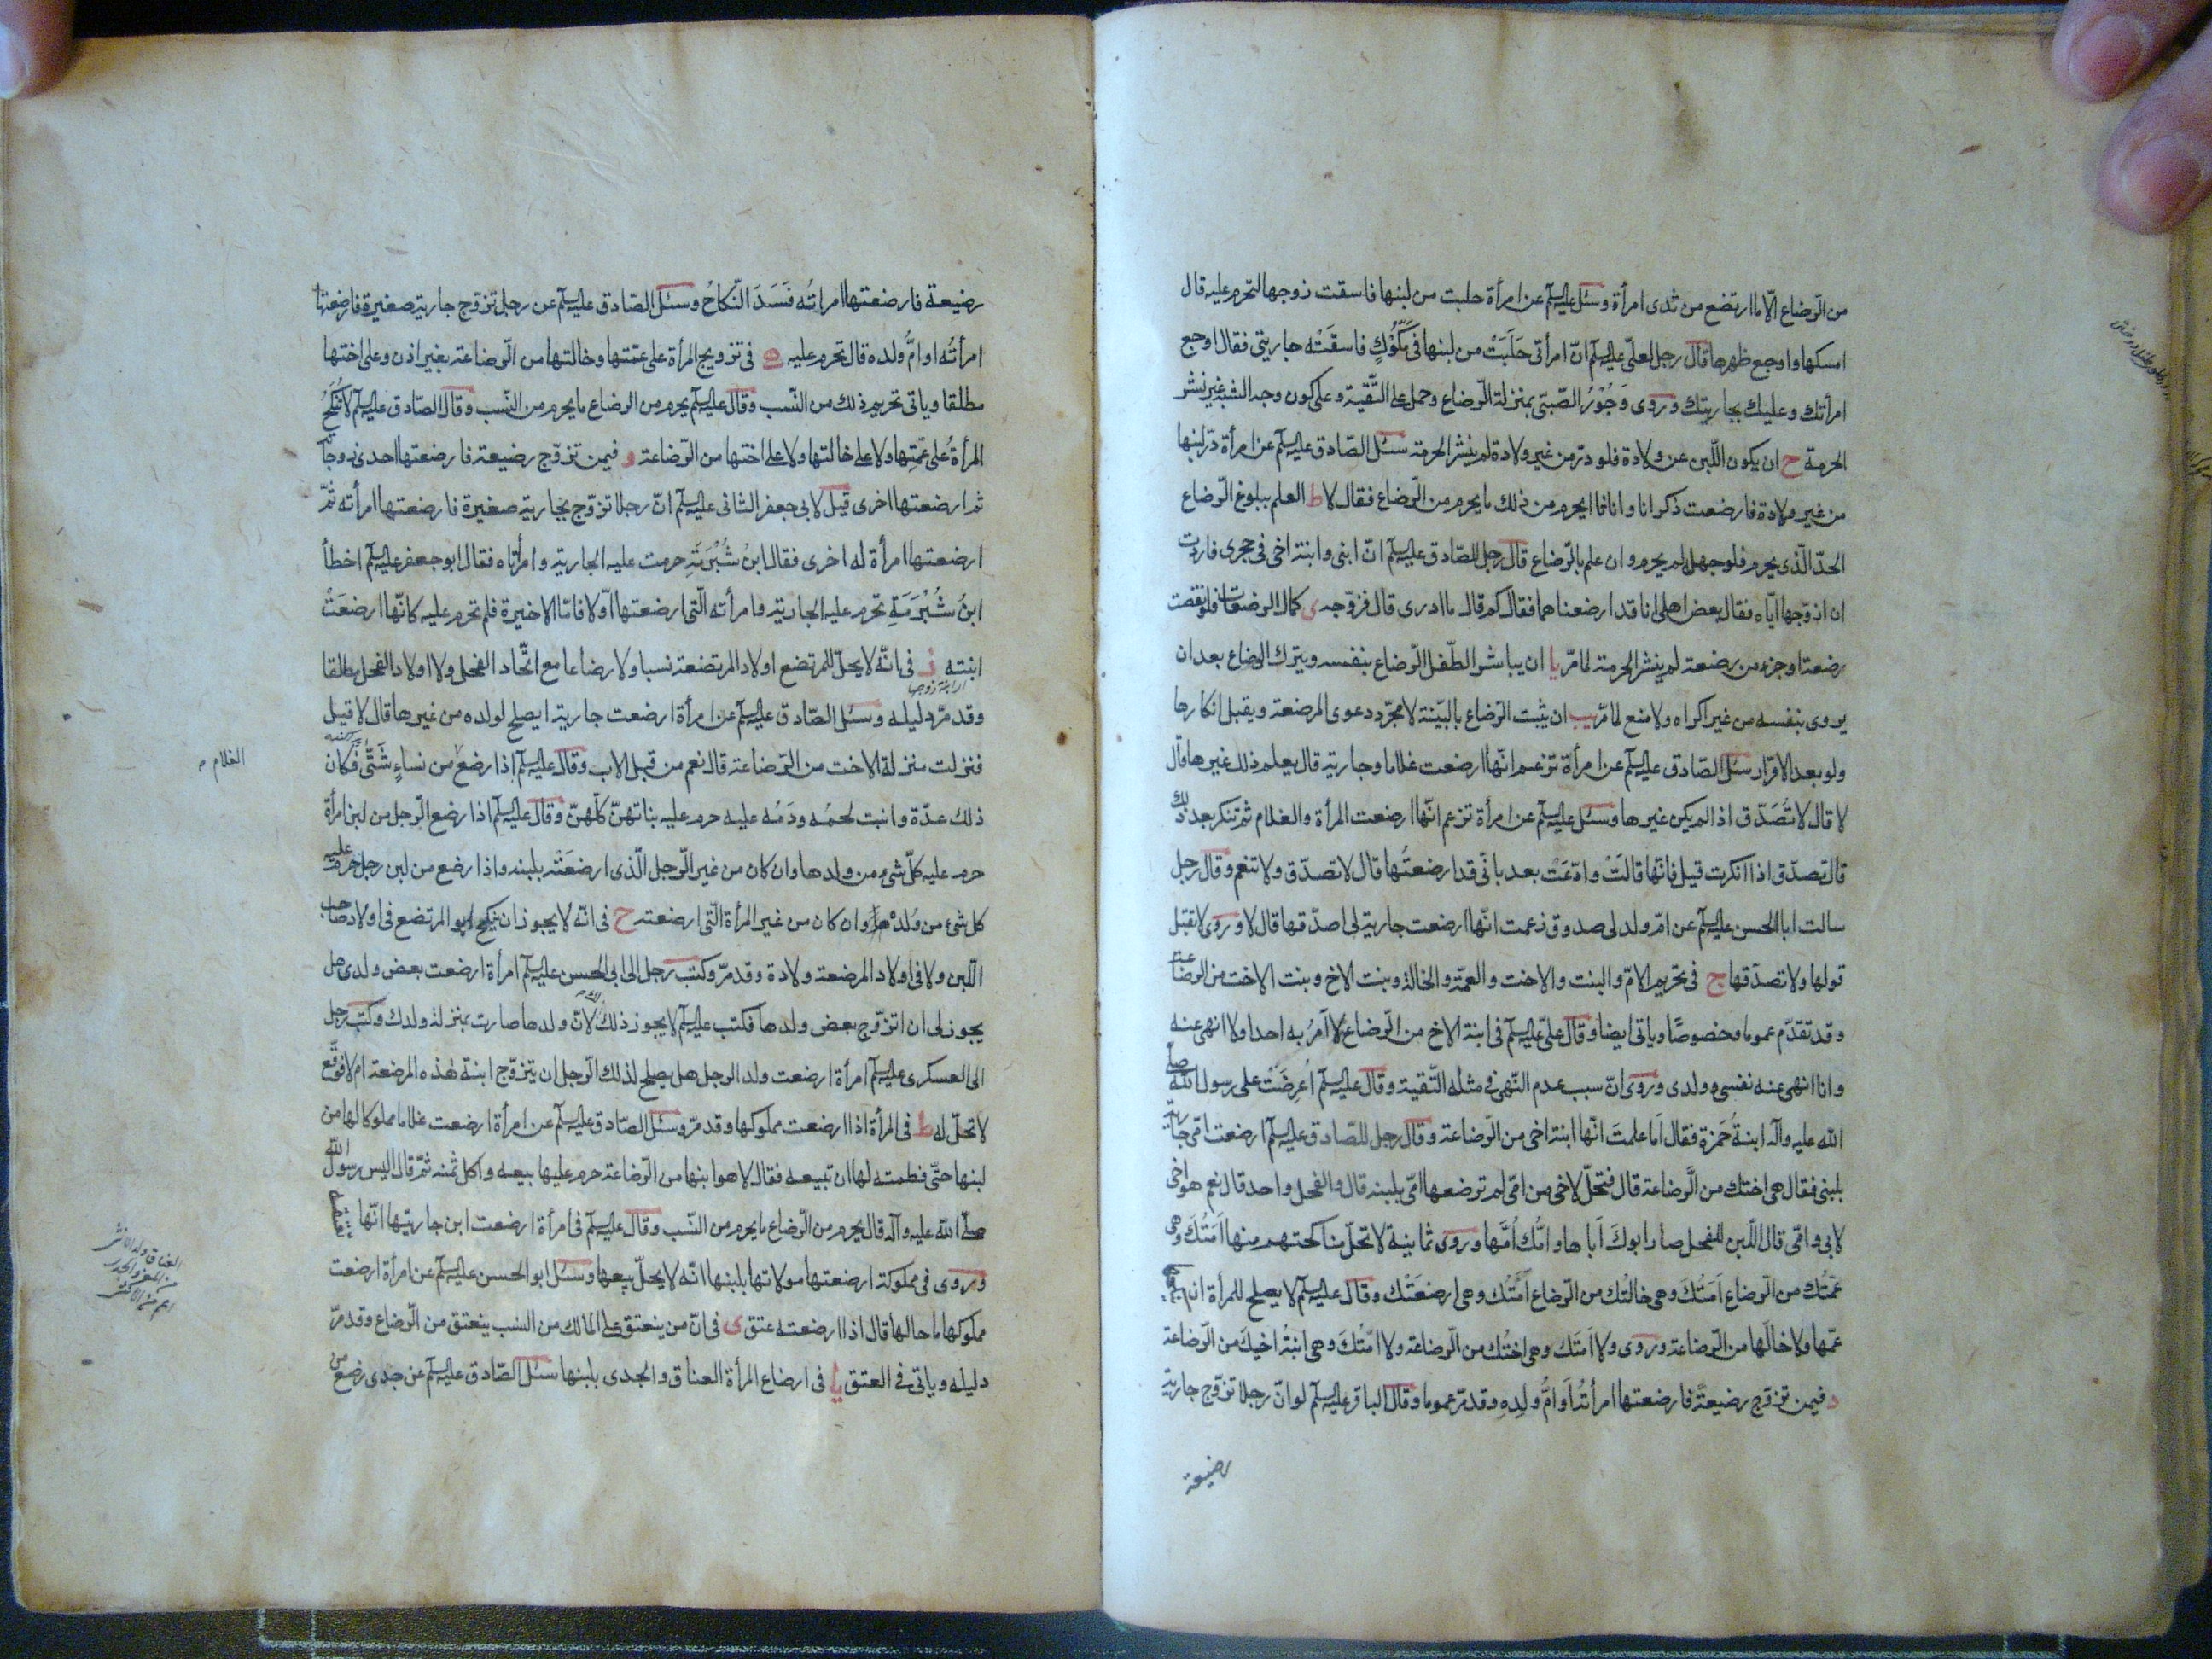 من الرّضاع الّا ما ارتضع من ثدى امرأة وسئل عليه السلم عن امرأة حلبت من لبنها فاسقت زوجها لتحرم عليه قال
امسكها واوجع ظهرها قال رجل لعلّى عليه السلم انّ امرأتى حَلَبَتْ من لبنها فى مَكُّوْكٍ فاسقَتْه جاريتى فقال اوجع
امرأتك وعليك بجاريتك وروى وَجُوْرُ الصّبىّ بمنزلة الرّضاع وحمل على التّقيّة وعلى كون وجه الشبه غير نشر
الحرمة ح ان يكون اللّبن عن ولادة فلو درّ من غير ولادة لم ينشر الحرمة سئل الصّادق عليه السلم عن امرأة درّ لبنها
من غير ولادة فارضعت ذكرانا واناثا ايحرم من ذلك ما يحرم من الرّضاع فقال لا ط العلم ببلوغ الرّضاع
الحدّ الّذى يحرم فلو جهل لم يحرم وان علم بالرّضاع قال رجل للصّادق عليه السلم انّ ابنى وابنة اخى فى حجرى فاردت
ان ازوّجها ايّاه فقال بعض اهلى انا قد ارضعناهما فقال كم قال ما ادرى قال فزوّجه ى كمال الرضعات فلو نقصت
رضعة او جزء من رضعة لم ينشر الحرمة لما مرّ يا ان يباشر الطّفل الرّضاع بنفسه ويترك الرضاع بعد ان
يروى بنفسه من غير اكراه ولا منع لما مرّ يب ان يثبت الرّضاع بالبيّنة لا مجرّد دعوى المرضعة ويقبل انكارها
ولو بعد الاقرار سئل الصّادق عليه السلم عن امرأة تزعم انّها ارضعت غلاما وجارية قال يعلم ذلك غيرها قال
لا قال لا تُصَدّق اذا لم يكن غيرها وسئل عليه السلم عن امرأة تزعم انّها ارضعت المرأة والغلام ثم تنكر بعد ذلك
قال تصدّق اذا انكرت قيل فانّها قالَتْ وادّعَتْ بعد بانّى قد ارضعتُها قال لا تصدّق ولا تنعم وقال رجل
سالت ابا الحسن عليه السلم عن امّ ولد لى صدوق زعمت انّها ارضعت جارية لى اصدّقها قال لا وروى لا تقبل
قولها ولا تصدّقها ج فى تحريم الامّ والبنت والاخت والعمّة والخالة وبنت الاخ وبنت الاخت من الرضاعة
وقد تقدّم عموما وخصوصًا وياتى ايضا وقال علىّ عليه السلم فى ابنة الاخ من الرّضاع لا آمرُ به احدا ولا انهى عنه
وانا انهى عنه نفسى وولدى وروى انّ سبب عدم النّهى فى مثله التّقيّة وقال عليه السلم اُعرِضَتْ على رسول الله صلى
الله عليه وآله ابنةُ حَمزة فقال اَما علمتَ انّها ابنة اخى من الرّضاعة وقال رجل للصّادق عليه السلم ارضعت امّى جارية
بلبنى فقال هى اختك من الرَّضاعة قال فتحلّ لاخى من امّى لم ترضعها امّى بلبنه قال والفحل واحد قال نعم هو اخى
لابى وامّى قال اللّبن للفحل صار ابوكَ اَباها وامُّك اُمَّها وروى ثمانية لا تحلّ مناكحتهم منها اَمَتُكَ وهى
عمّتُك من الرّضاع اَمَتُكَ وهى خالتُك من الرّضاع اَمَتُك وهى ارضعَتْك وقال عليه السلم لا يصلح للمرأة ان
عمّها ولا خالَها من الرّضاعة وروى ولا اَمتَك وهى اختُك من الرّضاعة ولا امّتَكَ وهى ابنةُ اخيكَ من الرّضاعة
د فيمن تزوّج رضيعةً فارضعتها امرأتُه اَو امُّ ولدِهِ وقد مرّ عموما وقال الباقر عليه السلم لو انّ رجلا تزوّج جارية
رضيعة
رضيعة فارضعتها امراتُه فَسَدَ النّكاحُ وسئل الصّادق عليه السلم عن رجل تزوّج جارية صغيرة فارضعتها
امرأتُه او امُّ ولده قال تحرم عليه ه فى تزويج المرأة على عمّتها وخالتها من الرّضاعة بغير اذن وعلى اختها
مطلقا وياتى تحريم ذلك من النّسب وقال عليه السلم يحرم من الرضاع ما يحرم من النّسب وقال الصّادق عليه السلم لا تُنْكَحُ
المرأةُ على عمّتِها ولا على خالتها ولا على اختها من الرّضاعة و فيمن تزوّج رضيعة فارضعتها احدى زوجاته
ثم ارضعتها اخرى قيل لابى جعفر الثانى عليه السلم انّ رجلا تزوّج بجارية صغيرة فارضعتها امرأته ثمّ
ارضعتها امرأة له اخرى فقال ابنُ شُبْرَمَةِ حرمت عليه الجارية وامرأتاه فقال ابو جعفر عليه السلم اخطأ
ابنُ شُبْرَمَةِ تحرم عليه الجارية وامرأته الّتى ارضعتها اوّلا فامّا الاخيرة فلم تحرم عليه كانّها ارضعَتْ
ابنته ز فى انّه لا يحلّ للمرتضع اولاد المرتضعة نسبا ولا رضاعا مع اتّحاد الفحل ولا اولاد الفحل مطلقا
وقد مرّ دليله وسئل الصّادق عليه السلم عن امرأة ارضعت جارية ايصلح لولده من غيرها قال لا قيل
فنزلت منزلة الاخت من الرّضاعة قال نعم من قبل الاب وقال عليه السلم اذا رضع من نساءٍ شَتّى فكان
الغلام م
ذلك عدّة وانبت لحمُه ودَمُه عليه حرم عليه بناتهنّ كلّهنّ وقال عليه السلم اذا رضع الرّجل من لبن امرأة
حرم عليه كلّ شىء من ولدها وان كان من غير الرّجل الّذى ارضعَتْه بلبنه واذا رضع من لبن رجل حرم عليه
كل شىء من وُلْده وان كان من غير المرأة الّتى ارضعته ح فى انّه لا يجوز ان ينكح ابو المرتضع فى اولاد صاحب
اللّبن ولا فى اولاد المرضعة ولادة وقد مرّ وكتب رجل الى ابى الحسن عليه السلم امرأة ارضعت بعض ولدى هل
يجوز لى ان اتزوّج بعض ولدها فكتب عليه السلم لا يجوز ذلك لك لانّ ولدها صارت بمنزلة ولدك وكتب رجل
الى العسكرى عليه السلم امرأة ارضعت ولد الرجل هل يصلح لذلك الرّجل ان يتزوّج ابنة هذه المرضعة ام لا فوقّع
لا تحلّ له ط فى المرأة اذا ارضعت مملوكها وقد مرّ وسئل الصّادق عليه السلم عن امرأة ارضعت غلاما مملوكا لها من
لبنها حتّى فطمته لها ان تبيعه فقال لا هو ابنها من الرّضاعة حرم عليها بيعه واكل ثمنه ثمّ قال اليس رسول الله
صلّى الله عليه وآله قال يحرم من الرّضاع ما يحرم من النّسب وقال عليه السلم فى امرأة ارضعت ابن جاريتها انّها
وروى فى مملوكة ارضعتها مولاتها بلبنها انّه لا يحلّ بيعها وسئل ابو الحسن عليه السلم عن امرأة ارضعت
مملوكها ما حالها قال اذا ارضعته عتق ى فى انّ من ينعتق على المالك من النسب ينعتق من الرّضاع وقد مرّ
دليله وياتى فى العتق يا فى ارضاع المرأة العناق والجدى بلبنها سئل الصّادق عليه السلم عن جدى رضع من